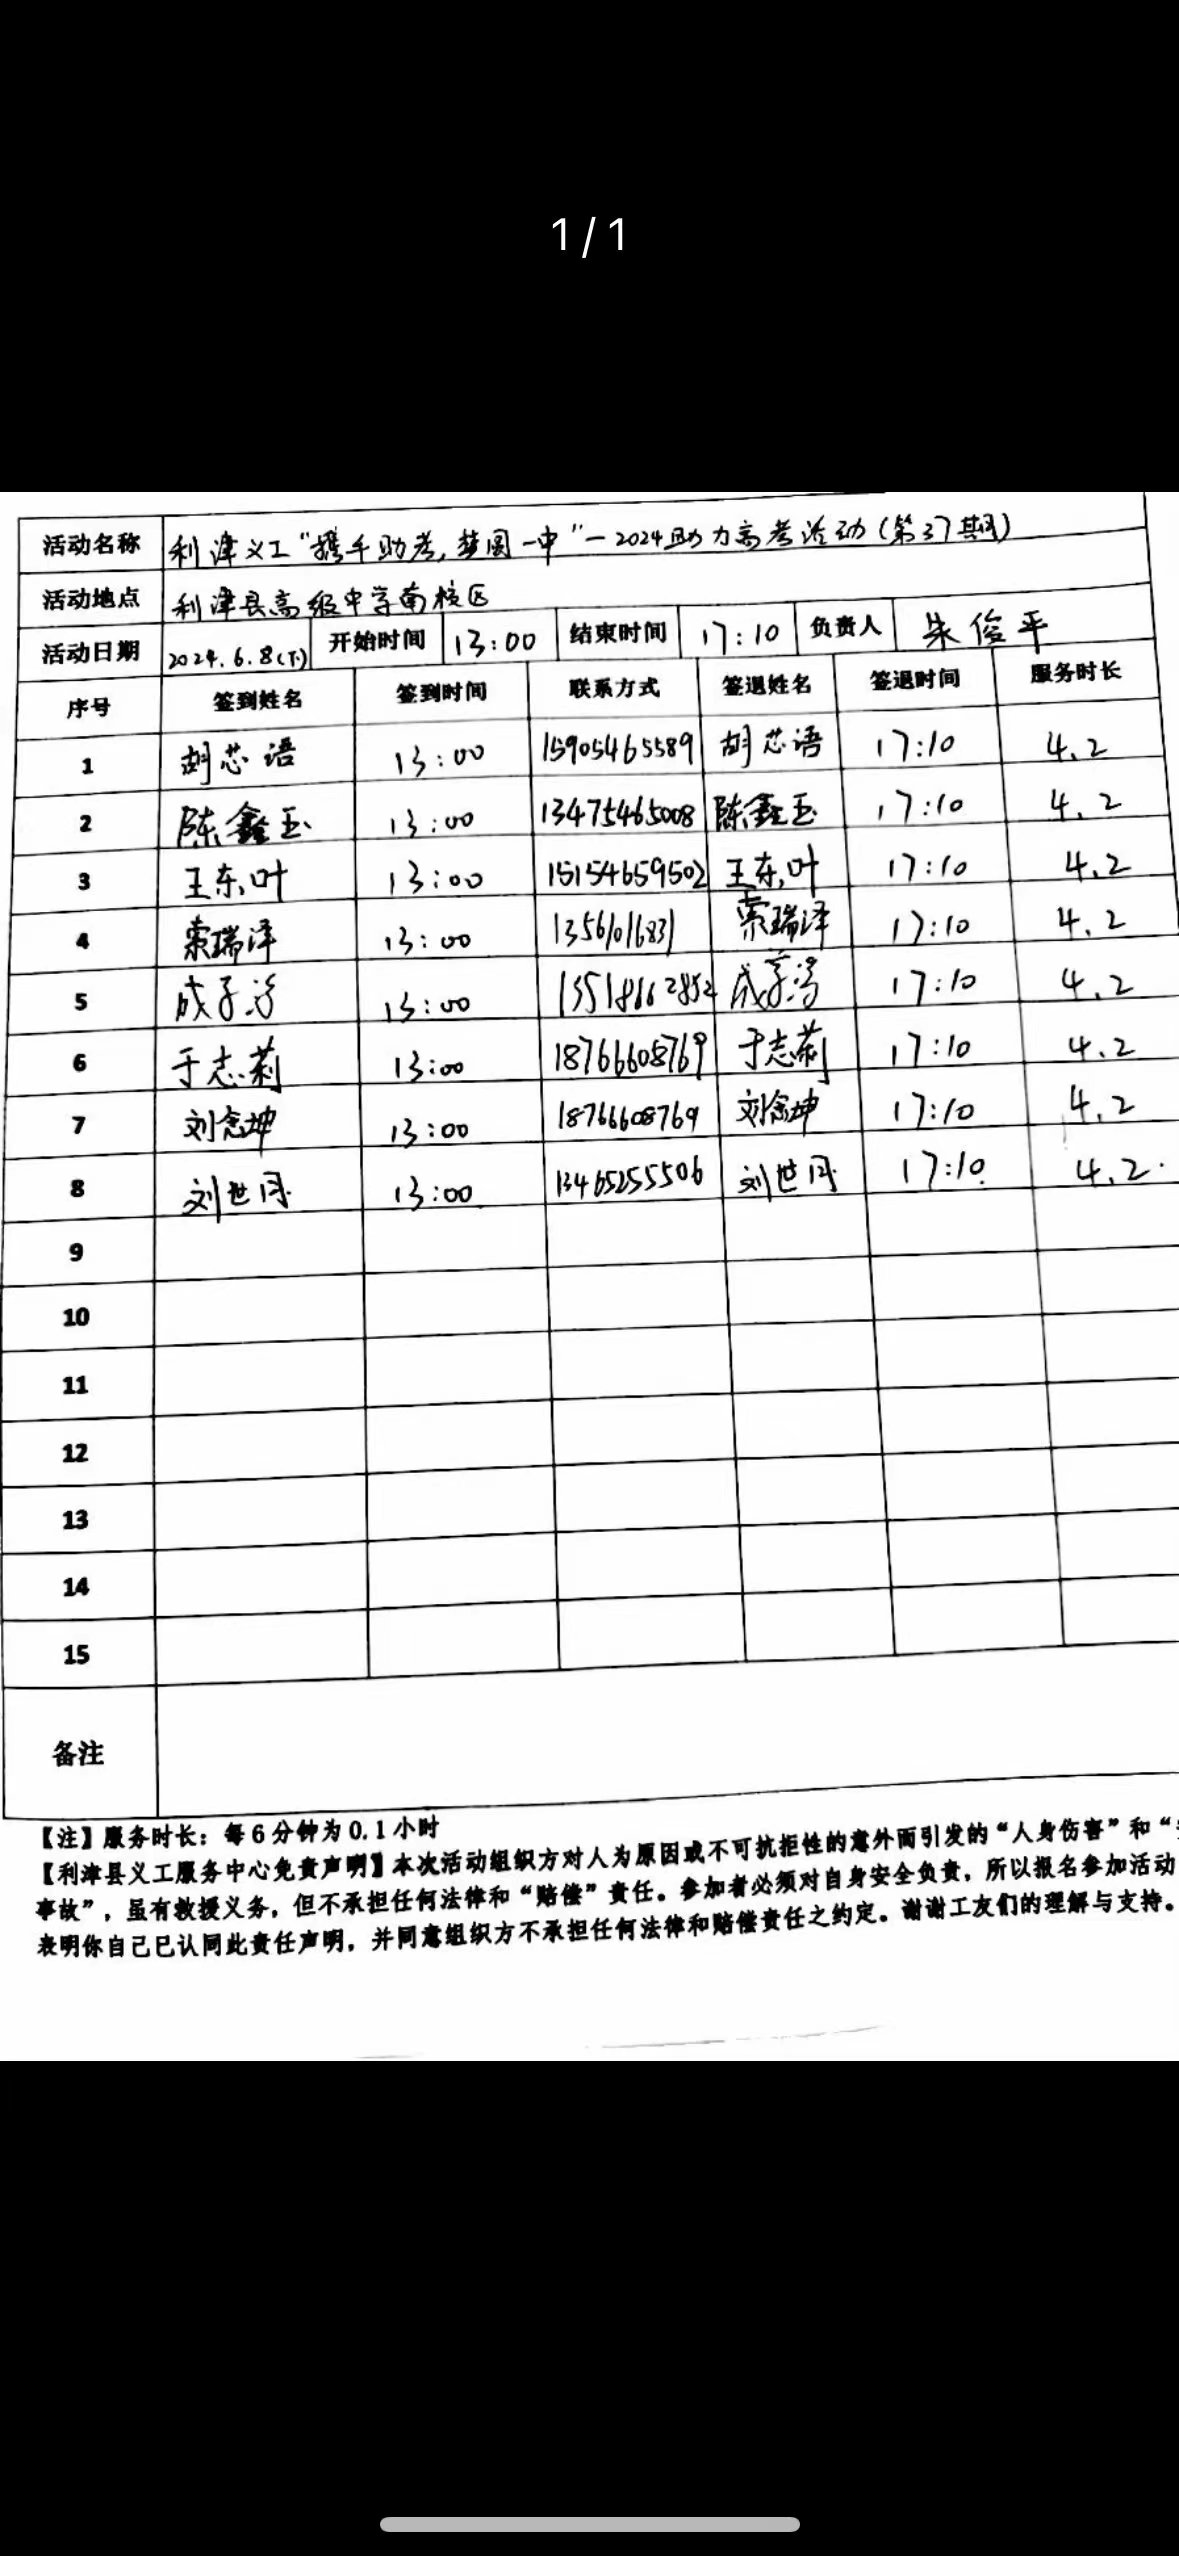 1 / 1
活动名称 利津义工“携手助考,梦圆一中”一2024助力高考活动(第37期)
活动地点 利津县高级中学南校区
活动日期 2024.6.8(下) 开始时间 13:00 结束时间 17:10 负责人 朱俊平
序号 签到姓名 签到时间 联系方式 签退姓名 签退时间 服务时长
1 胡芯语 13:00 15905465589 胡芯语 17:10 4.2
2 陈鑫玉 13:00 13475465008 陈鑫玉 17:10 4.2
3 王东叶 13:00 151154659502 王东叶 17:10 4.2
4 索瑞泽 13:00 索瑞泽 17:10 4.2
5 13:00 17:10 4.2
6 于志莉 13:00 18766608769 于志莉 17:10 4.2
7 刘念坤 13:00 18766608769 刘念坤 17:10 4.2
8 刘世同 13:00 13465255506 刘世同 17:10 4.2
9
10
11
12
13
14
15
备注
【注】服务时长:每6分钟为0.1小时
【利津县义工服务中心免责声明】本次活动组织方对人为原因或不可抗拒性的意外而引发的“人身伤害”和“
事故”,虽有救援义务,但不承担任何法律和“赔偿”责任。参加者必须对自身安全负责,所以报名参加活动
表明你自己已认同此责任声明,并同意组织方不承担任何法律和赔偿责任之约定。谢谢工友们的理解与支持。